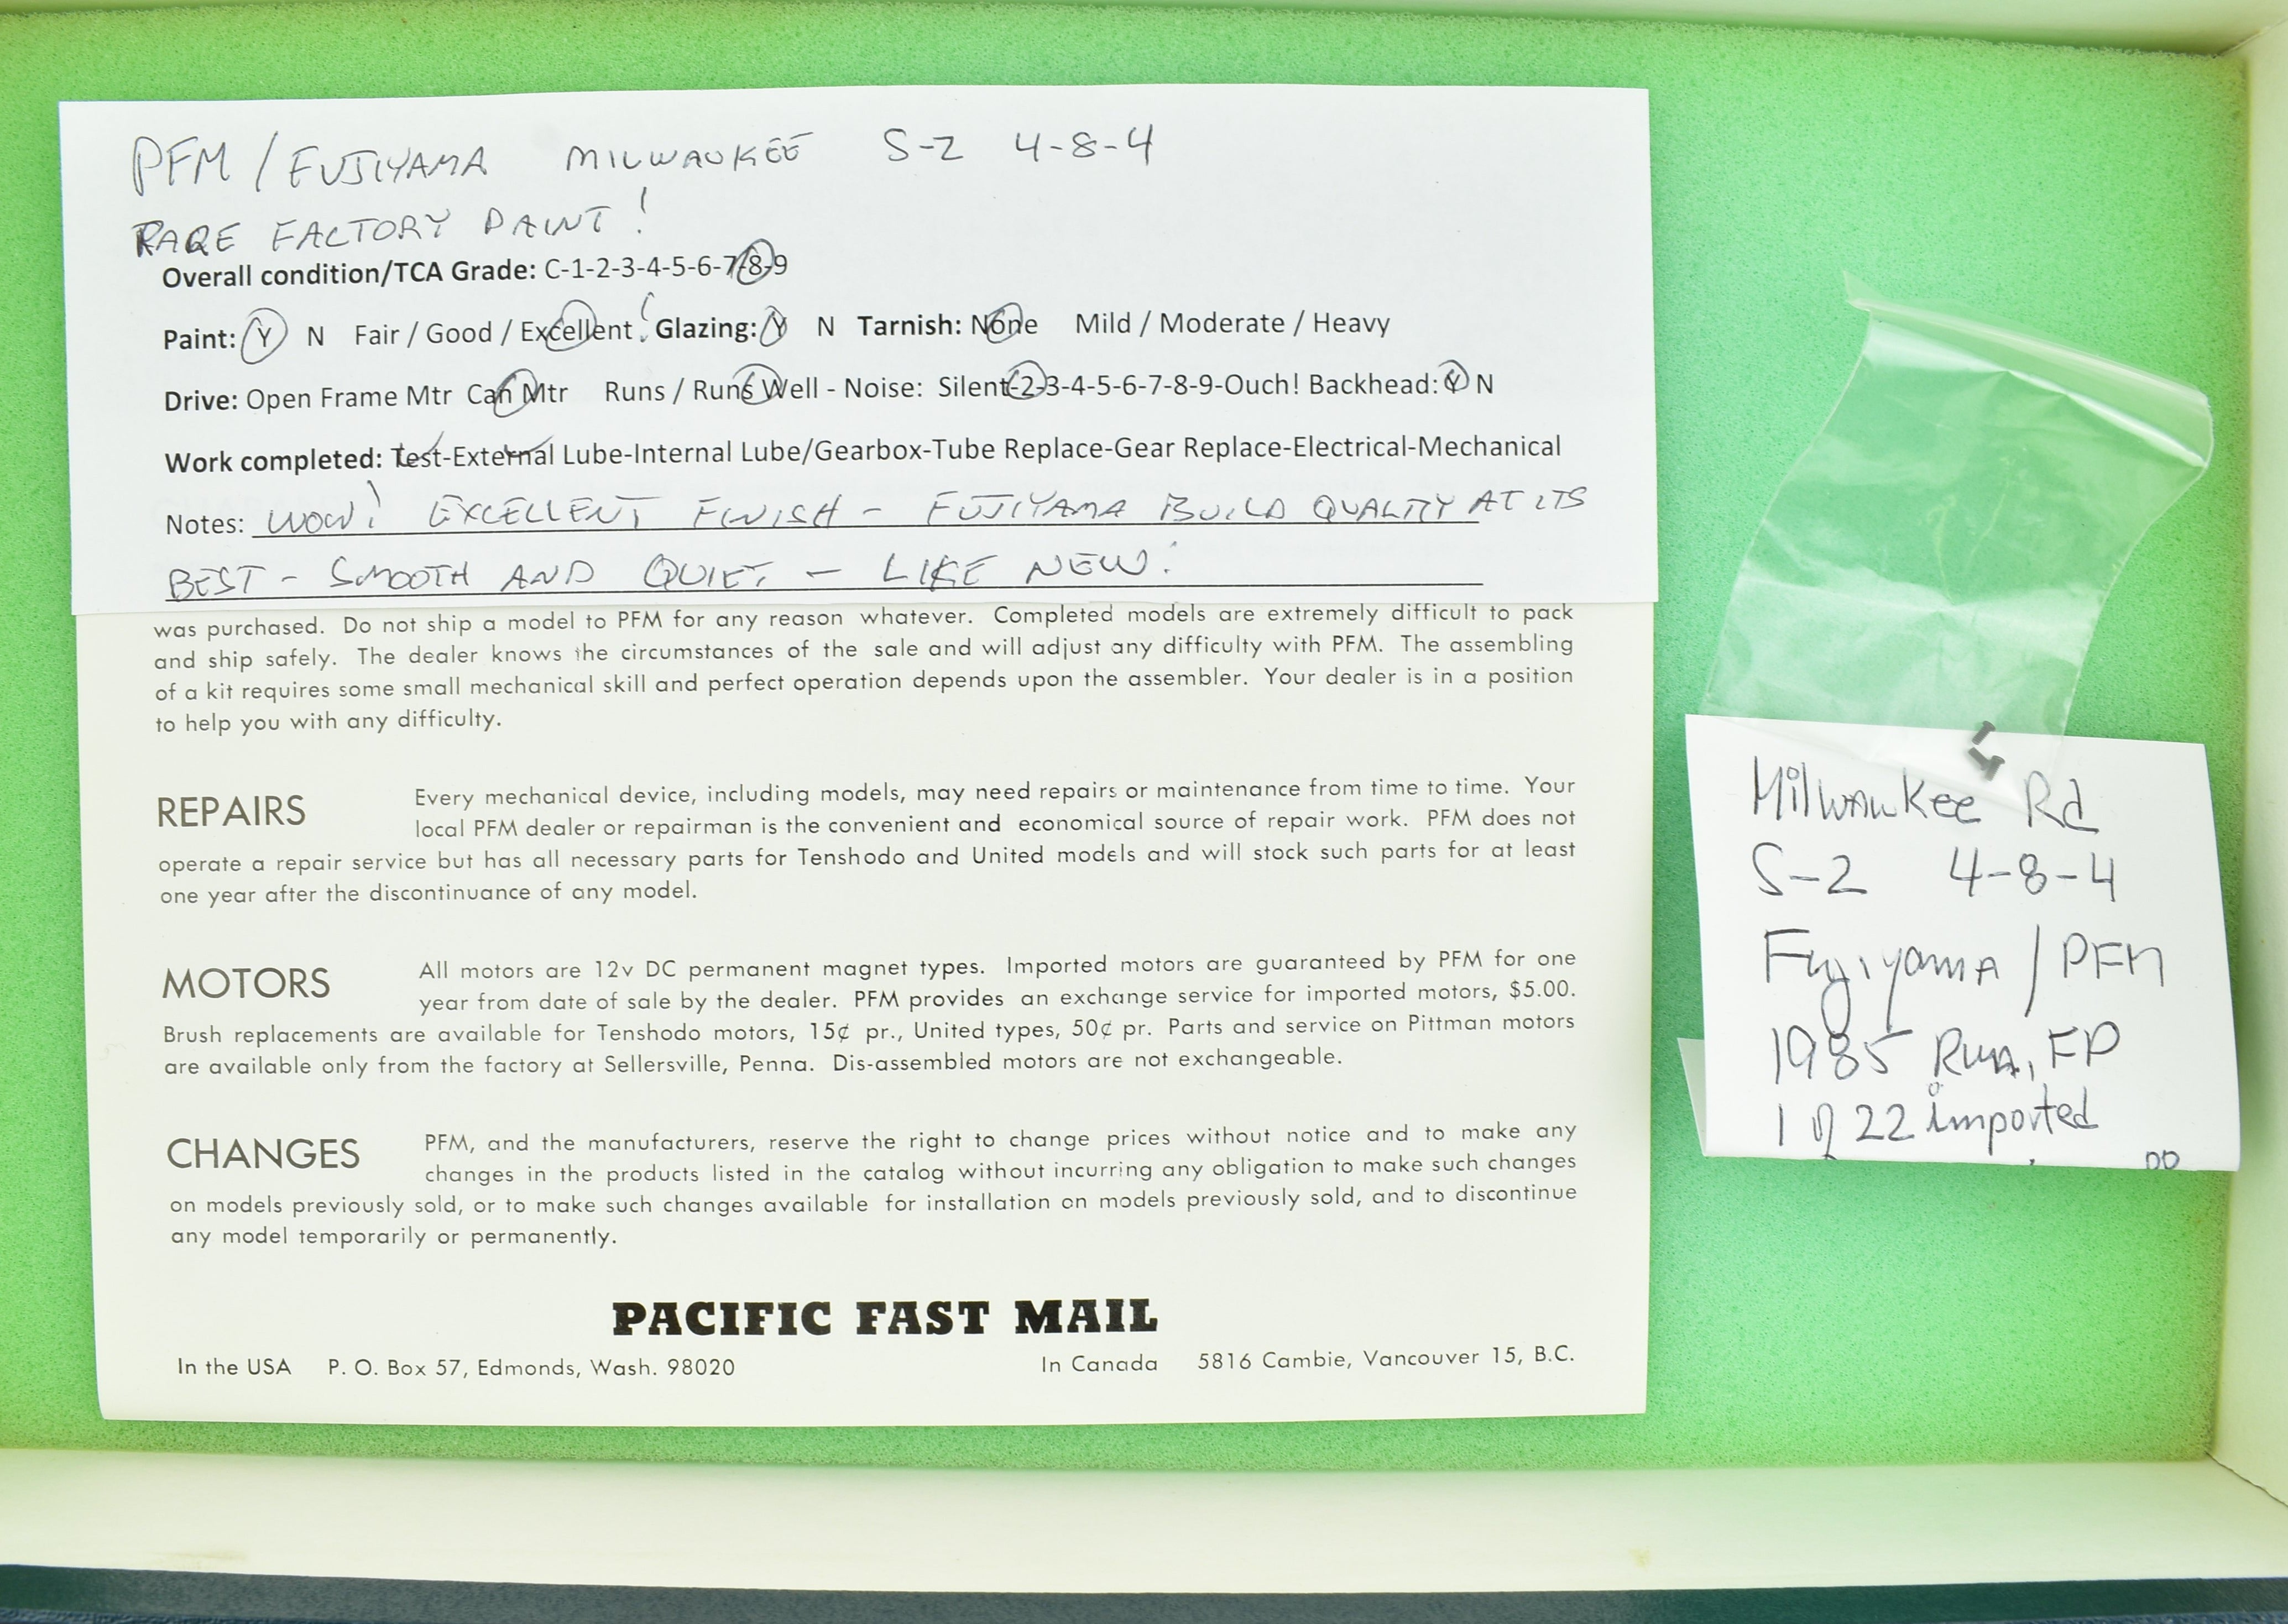 PFM / FUJIYAMA MILWAUKEE S-2 4-8-4
RARE FACTORY PAINT!
Overall condition/TCA Grade: C-1-2-3-4-5-6-7-8-9
Paint: Y N Fair / Good / Excellent ! Glazing: Y N Tarnish: None Mild / Moderate / Heavy
Drive: Open Frame Mtr Can Mtr Runs / Runs Well - Noise: Silent-2-3-4-5-6-7-8-9-Ouch! Backhead: Y N
Work completed: Test-External Lube-Internal Lube/Gearbox-Tube Replace-Gear Replace-Electrical-Mechanical
Notes: WOW! EXCELLENT FINISH - FUJIYAMA BUILD QUALITY AT ITS
BEST - SMOOTH AND QUIET - LIKE NEW!
was purchased. Do not ship a model to PFM for any reason whatever. Completed models are extremely difficult to pack
and ship safely. The dealer knows the circumstances of the sale and will adjust any difficulty with PFM. The assembling
of a kit requires some small mechanical skill and perfect operation depends upon the assembler. Your dealer is in a position
to help you with any difficulty.
REPAIRS Every mechanical device, including models, may need repairs or maintenance from time to time. Your
local PFM dealer or repairman is the convenient and economical source of repair work. PFM does not
operate a repair service but has all necessary parts for Tenshodo and United models and will stock such parts for at least
one year after the discontinuance of any model.
MOTORS All motors are 12v DC permanent magnet types. Imported motors are guaranteed by PFM for one
year from date of sale by the dealer. PFM provides an exchange service for imported motors, $5.00.
Brush replacements are available for Tenshodo motors, 15¢ pr., United types, 50¢ pr. Parts and service on Pittman motors
are available only from the factory at Sellersville, Penna. Dis-assembled motors are not exchangeable.
CHANGES PFM, and the manufacturers, reserve the right to change prices without notice and to make any
changes in the products listed in the catalog without incurring any obligation to make such changes
on models previously sold, or to make such changes available for installation on models previously sold, and to discontinue
any model temporarily or permanently.
PACIFIC FAST MAIL
In the USA P. O. Box 57, Edmonds, Wash. 98020 In Canada 5816 Cambie, Vancouver 15, B.C.
Milwaukee Rd
S-2 4-8-4
Fujiyama / PFM
1985 Run, FP
1 of 22 imported